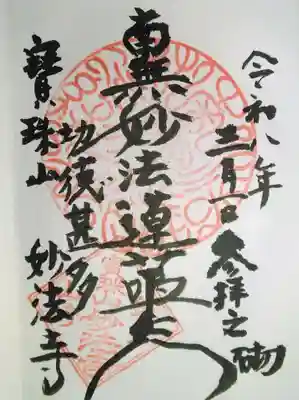 令和八年
参拝之砌
南無妙法蓮華経
功徳甚多
寳珠山
妙法寺